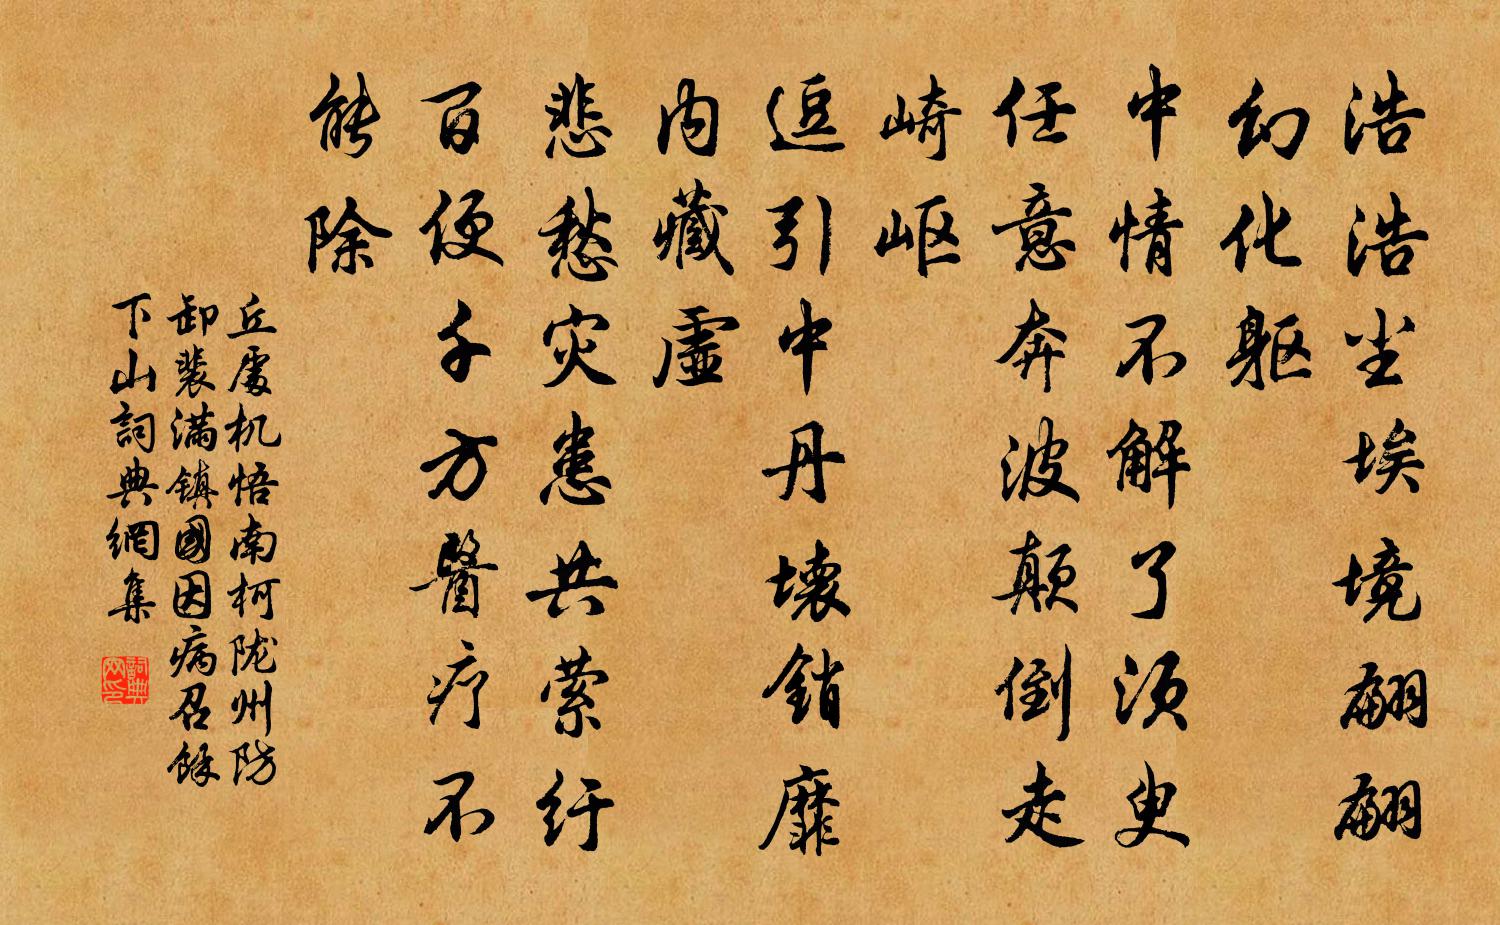 浩浩尘埃境翩翩
幻化躯
中情不解了须臾
任意奔波颠倒走
崎岖
逗引中丹壊销靡
内藏虚
悲愁灾患共萦纡
百便千方醫疗不
能除
丘處机悟南柯陇州防
卸裴满镇國因病召馀
下山詞典網集
詞典网印